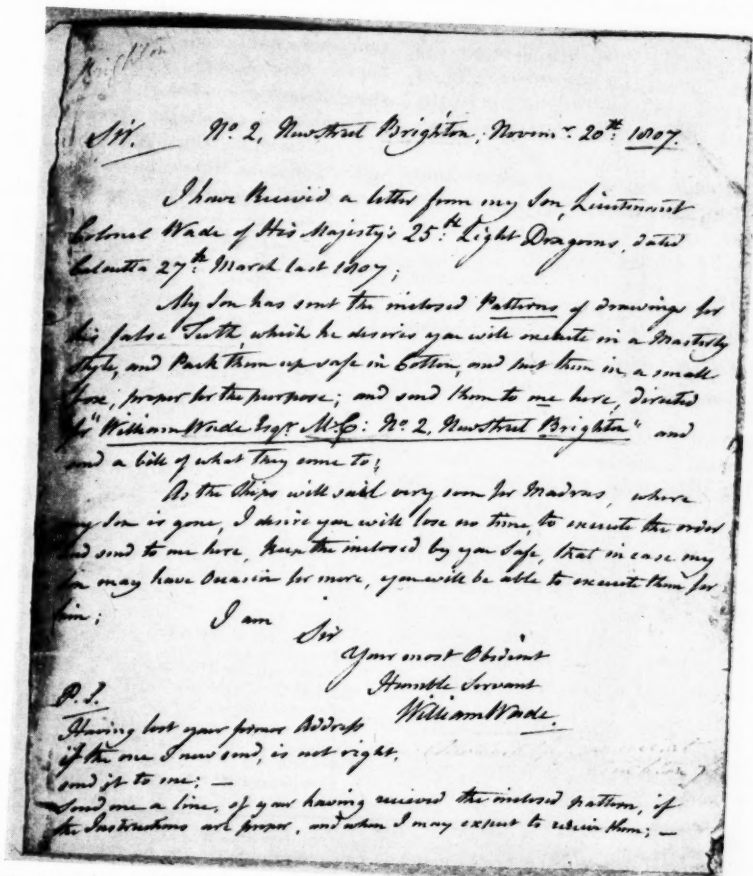 Brighton
Sir. No. 2, New Street Brighton, Novemr. 20th: 1807.
I have Recievd a letter from my Son, Lieutenant
Colonel Wade of His Majesty's 25th: Light Dragoons, dated
Calcutta 27th: March last 1807;
My Son has sent the inclosed Patterns of drawings for
his false Teeth, which he desires you will execute in a Masterly
Style, and Pack them up safe in Cotton, and put them in, a small
box, proper for the purpose; and send them to me here, directed
for "William Wade Esqr. M.C: No. 2, New Street Brighton" and
send a bill of what they come to;
As the Ships will sail very soon for Madras, where
my Son is gone, I desire you will lose no time, to execute the order
and send to me here, keep the inclosed by you Safe, that in case my
Son may have Occasion for more, you will be able to execute them for
him; I am
Sir
Your most Obedient
Humble Servant
William Wade.
P.S.
Having lost your former Address
if the one I now send, is not right,
send it to me; —
Send me a line, of your having recieved the inclosed pattern, if
the Instructions are proper, and when I may expect to recieve them; —